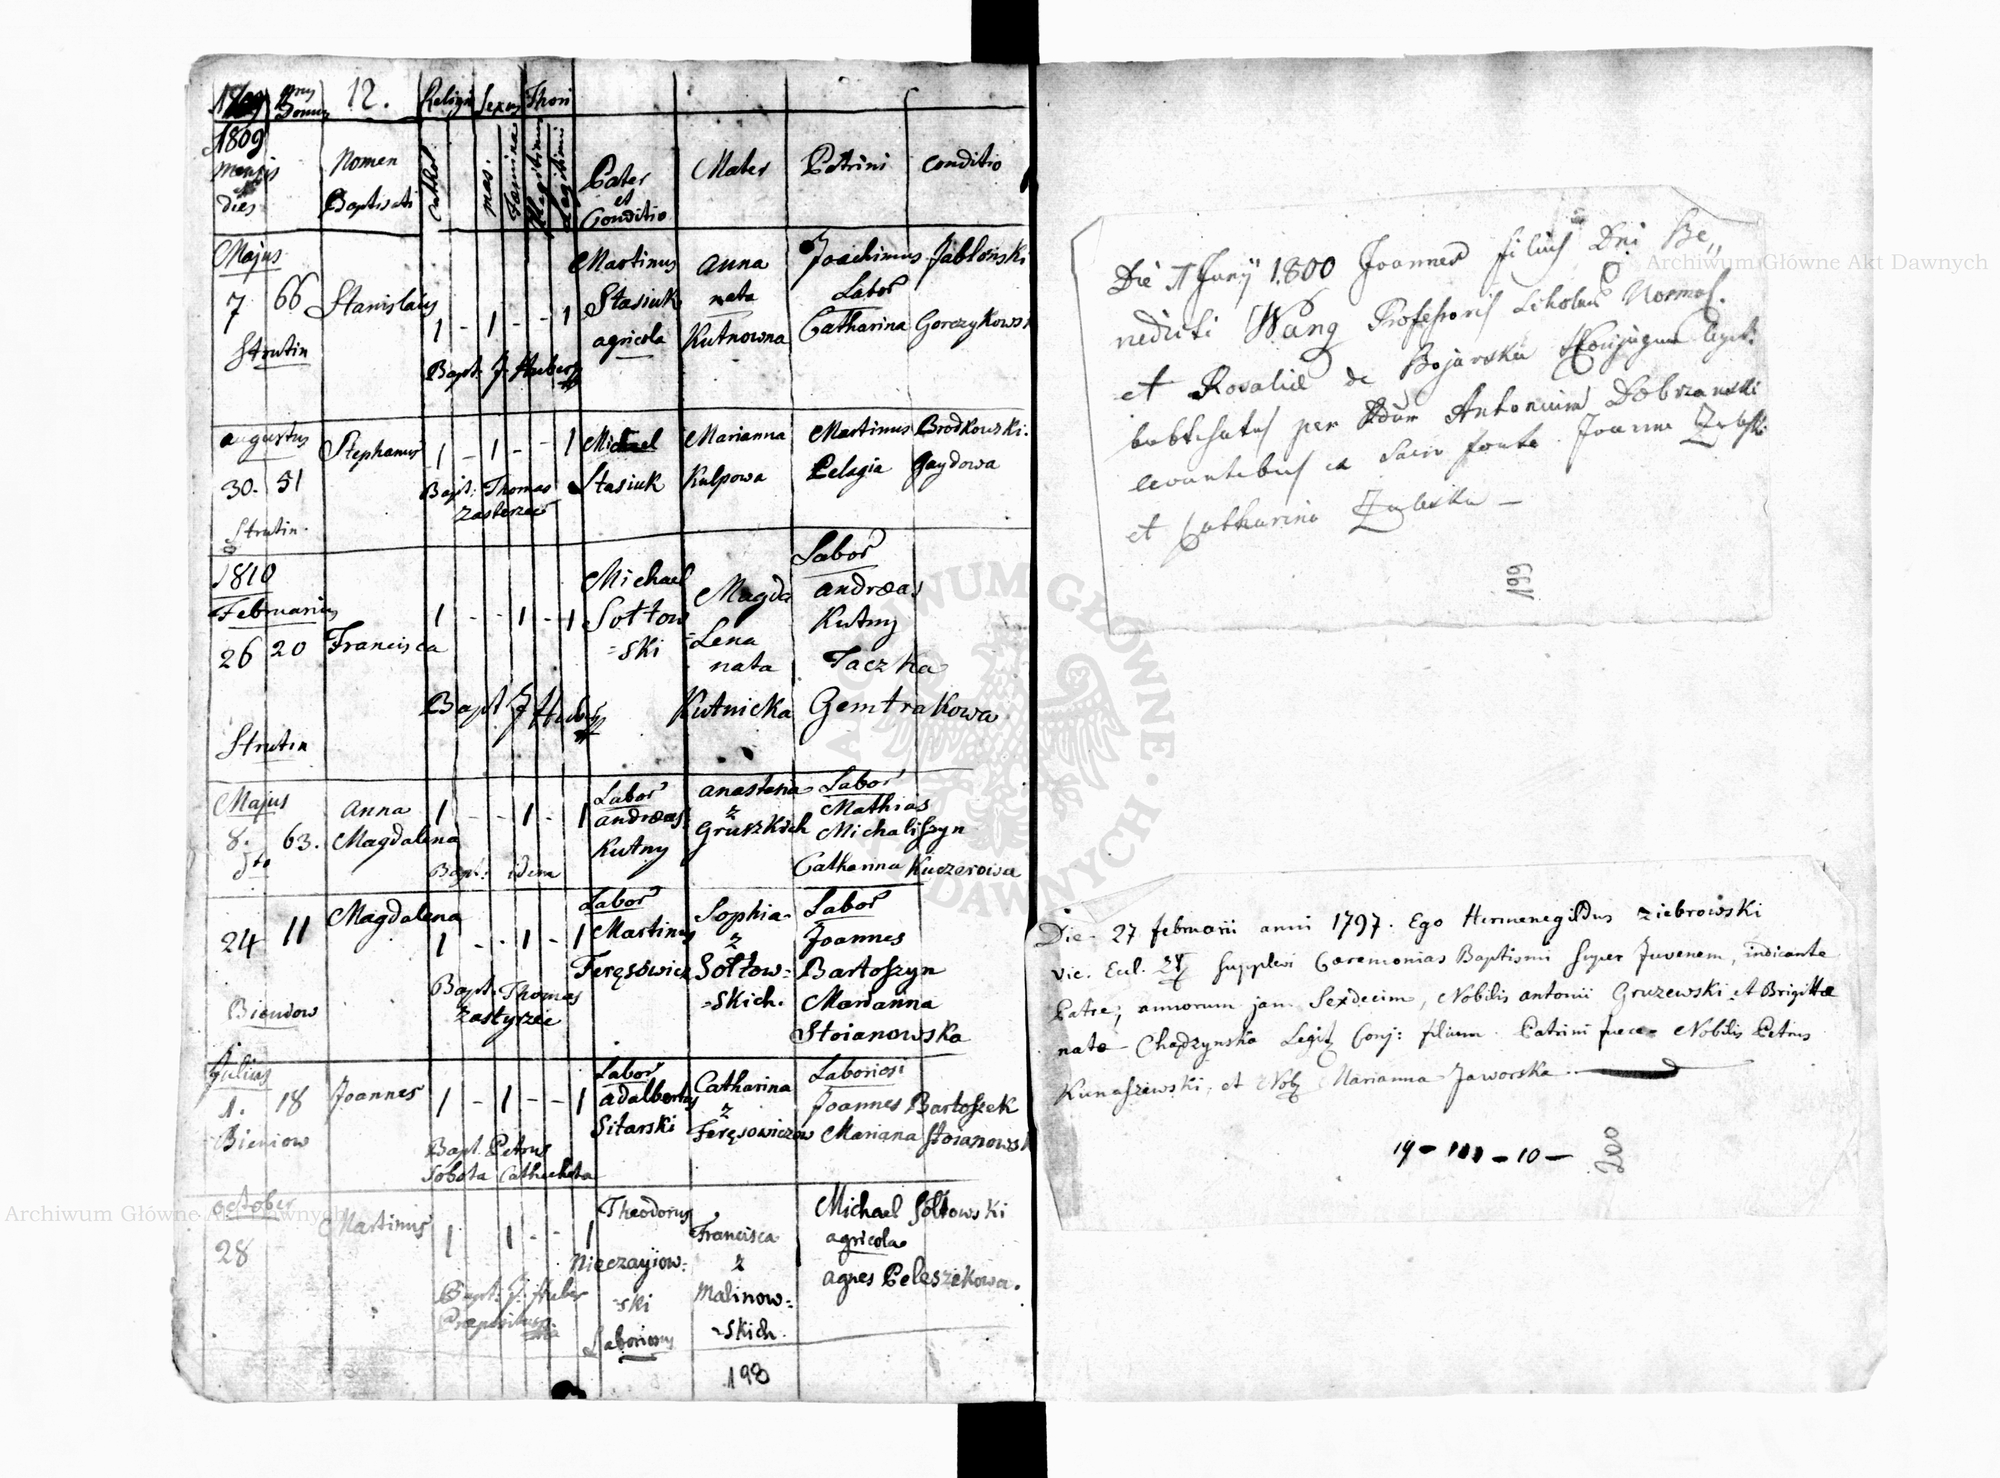 1809 Nrus Domus 12. Religio Sexus Thori
1809 mensis et dies
Nomen Baptisati
Cathol.
mas.
Foemina
Illegitimi
Legitimi
Pater et Conditio
Mater
Patrini
Conditio
Majus
7 66 Stanislaus 1 - 1 - - 1
Strutin
Bapt. J. Huber
Martinus
Stasiuk
agricola
anna
nata
Kutnowna
Joachimus Jabłoński
Labor
Catharina Gorczykowsk
augustus
30. 51 Stephanus 1 - 1 - - 1
Strutin
Bapt: Thomas
Zasterzec
Michael
Stasiuk
Marianna
Kulpowa
Martinus Brodkowski.
Pelagia Gaydowa
1810
Februarius
26 20 Francisca 1 - - 1 - 1
Strutin
Bapt J Huber
Michael
Sołtow
=ski
Magda
=Lena
nata
Kutnicka
Labor
andræas
Kutny
Taczka
Gemtrakowa
Majus
8. 63. anna
Magdalena 1 - - 1 - 1
dto
Bapt: idem
Labor
andræas
Kutny
anastasia
z
Gruszkich
Labor
Mathias
Michaliszyn
Catharina Kuczerowa
24 11 Magdalena 1 - - 1 - 1
Bieniow
Bapt. Thomas
Zastyrzec
Labor
Martinus
Feręsowicz
Sophia
z
Sołtow=
=skich.
Labor
Joannes
Bartoszyn
Marianna
Stoianowska
Julius
1. 18 Joannes 1 - 1 - - 1
Bieniow
Bapt. Petrus
Sobota Cathecheta
Labor
adalbertus
Sitarski
Catharina
z
Feręsowiczow
Laboriosi
Joannes Bartoszek
Mariana Stoianowsk
october
28 Martinus 1 1 - - 1
Bapt: J. Huber
Præpositus
Theodorus
Nieczayiow=
=ski
Laboriosus
Francisca
z
Malinow=
=skich.
Michael Sołtowski
agricola
agnes Peleszekowa.
198
Die Junÿ 1800 Joannes filius Dni Be,,
nedicti Wang Professoris Scholae Normal.
et Rosaliæ de Bojarska Conjugum legit.
babtisatus per Antonium Dobrzanski
levantibus ex Sacro fonte Joanne
et Catharina Zaleska —
199
Die 27 februarii anni 1797. Ego Hermenegildus Ziebrowski
vic. Eccl. supplevi Ceremonias Baptismi super Juvenem, indicante
Patre, annorum jam Sexdecim, Nobilis antonii Gruzewski et Brigittæ
natæ Chądzynska Legit Conj: filium. Patrini fuere Nobilis Petrus
Kunaszewski, et Nob Marianna Jaworska
19 - - 10 -
200
Archiwum Główne Akt Dawnych
Archiwum Główne Akt Dawnych
ARCHIWUM GŁÓWNE AKT DAWNYCH